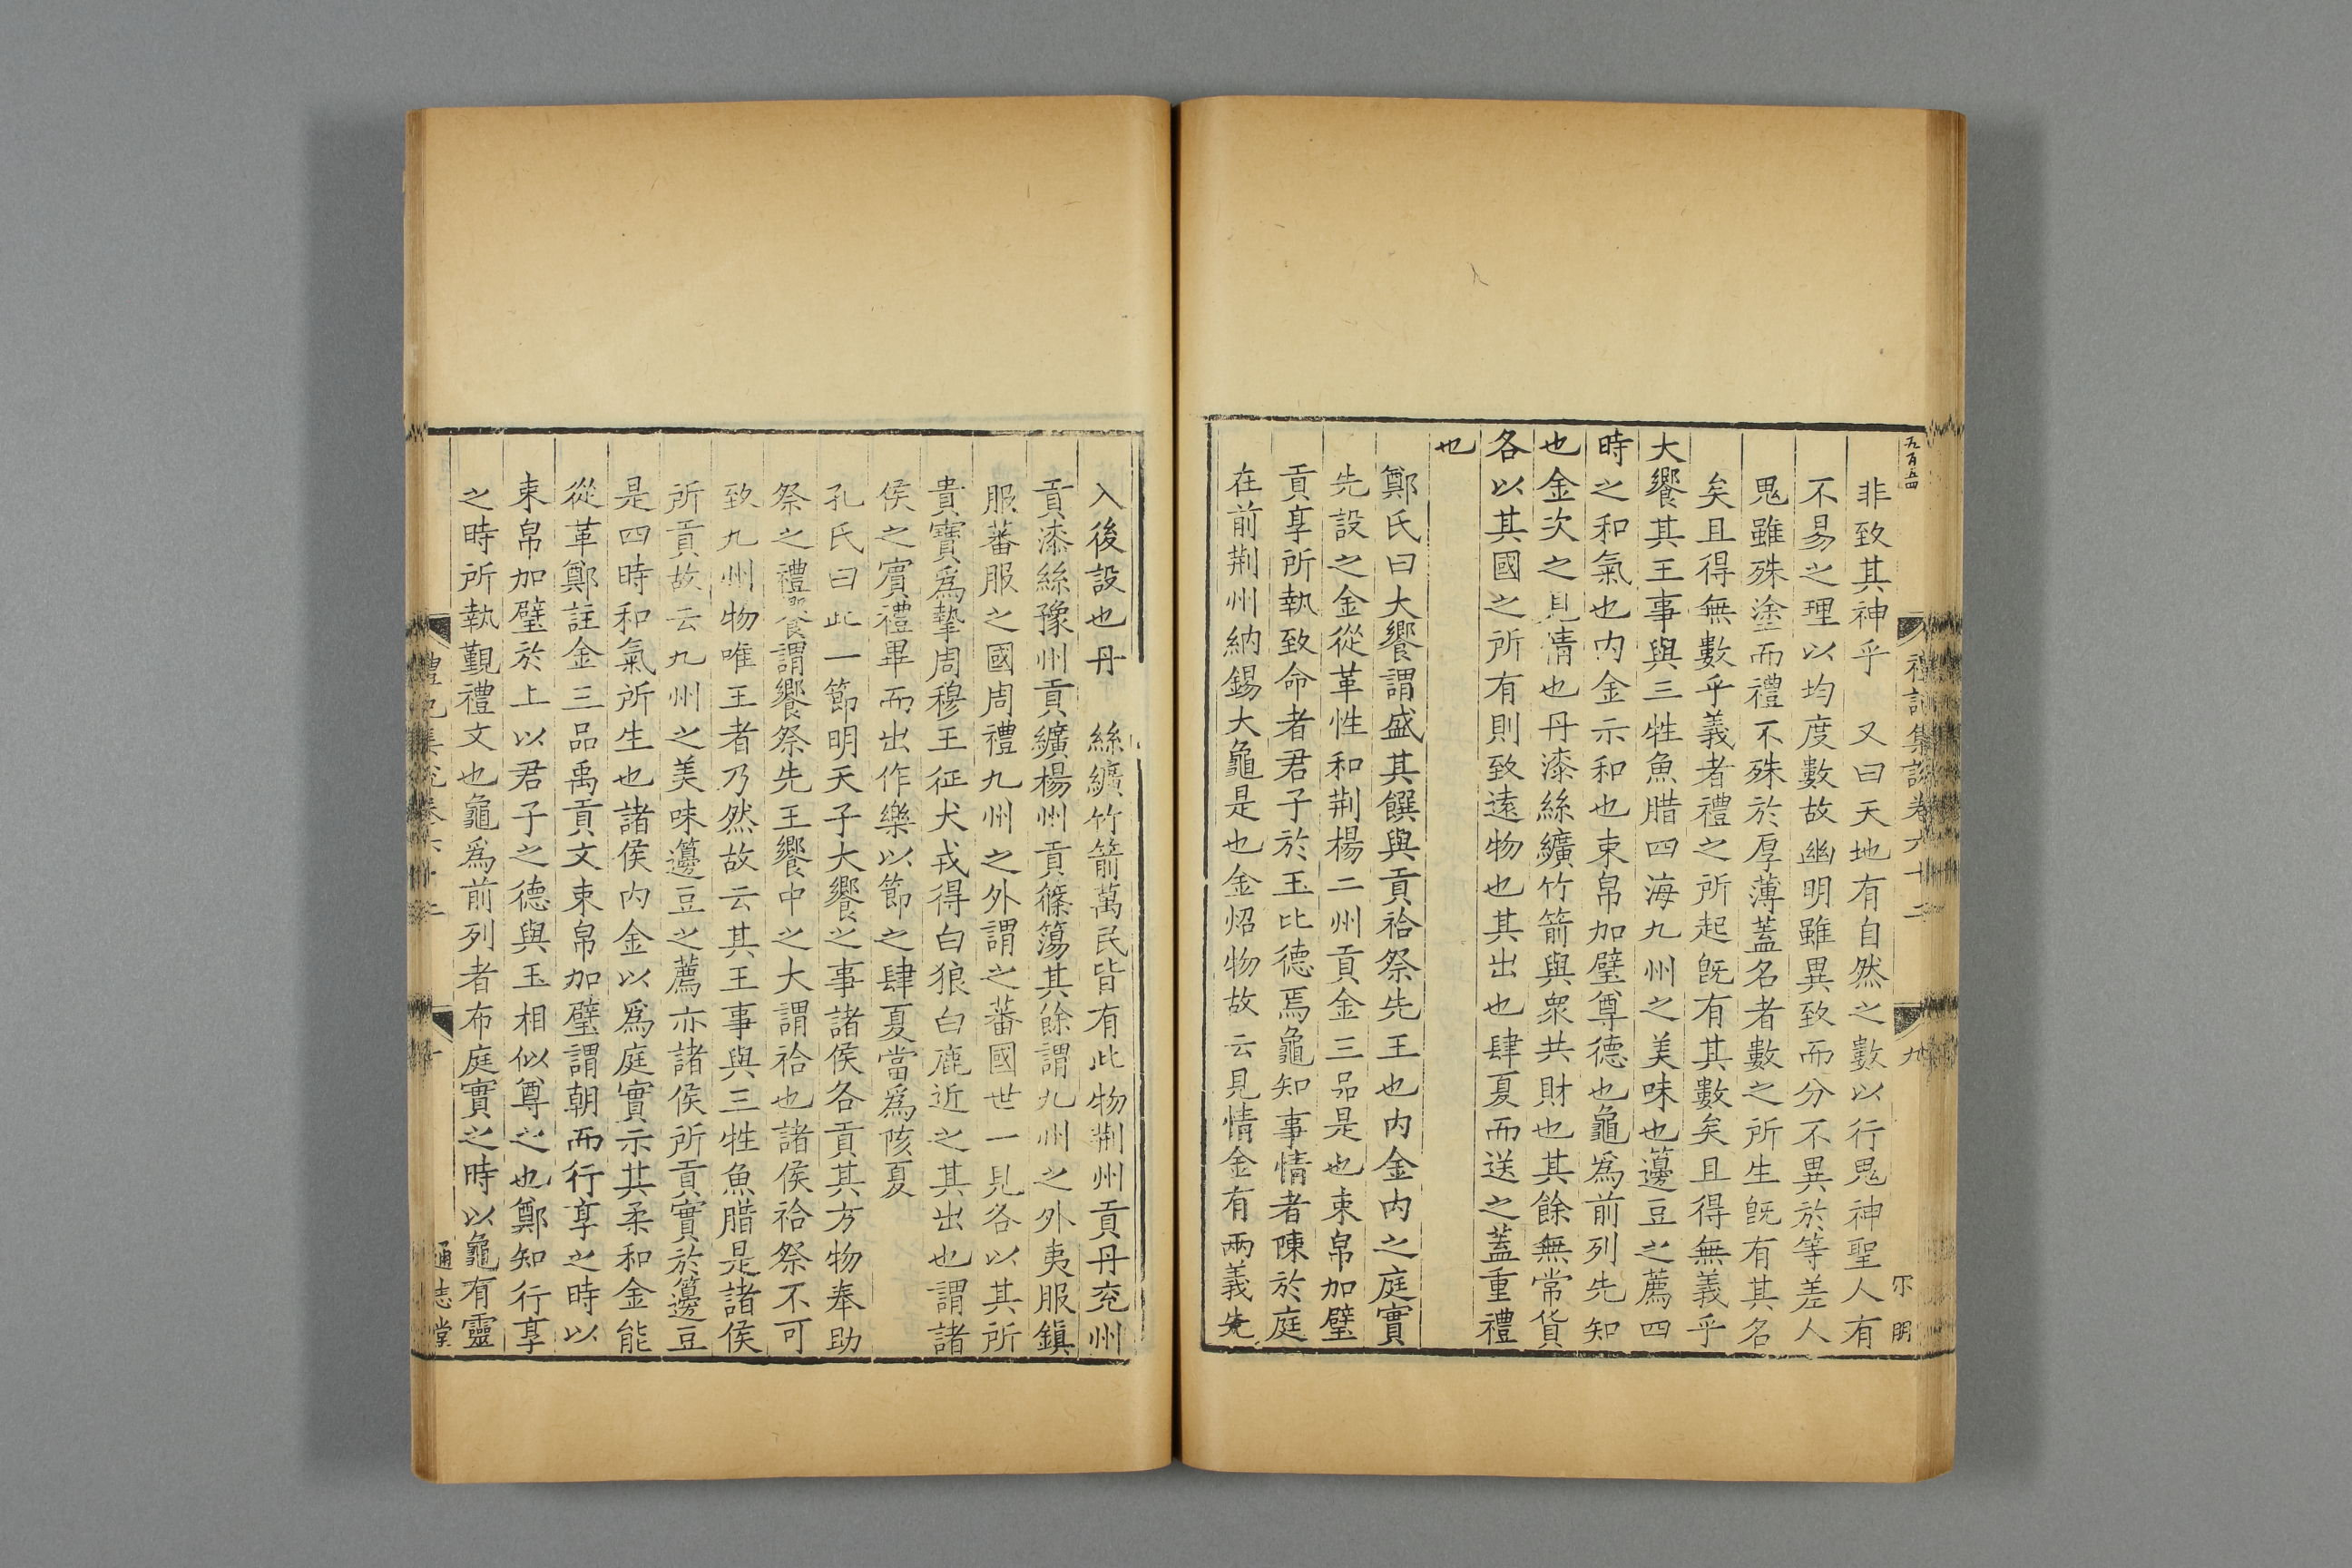 五百五四
禮記集說卷六十二
九
尔明
非致其神乎　又曰天地有自然之數以行鬼神聖人有
不易之理以均度數故幽明雖異致而分不異於等差人
鬼雖殊塗而禮不殊於厚薄蓋名者數之所生旣有其名
矣且得無數乎義者禮之所起旣有其數矣且得無義乎
大饗其王事與三牲魚腊四海九州之美味也籩豆之薦四
時之和氣也内金示和也束帛加璧尊德也龜爲前列先知
也金次之見情也丹漆絲纊竹箭與衆共財也其餘無常貨
各以其國之所有則致遠物也其出也肆夏而送之蓋重禮
也
鄭氏曰大饗謂盛其饌與貢祫祭先王也内金内之庭實
先設之金從革性和荆楊二州貢金三品是也束帛加璧
貢享所執致命者君子於玉比德焉龜知事情者陳於庭
在前荆州納錫大龜是也金炤物故云見情金有兩義先
入後設也丹　絲纊竹箭萬民皆有此物荆州貢丹兖州
貢漆絲豫州貢纊楊州貢篠簜其餘謂九州之外夷服鎭
服蕃服之國周禮九州之外謂之蕃國世一見各以其所
貴寶爲摯周穆王征犬戎得白狼白鹿近之其出也謂諸
侯之賓禮畢而出作樂以節之肆夏當爲陔夏
孔氏曰此一節明天子大饗之事諸侯各貢其方物奉助
祭之禮饗謂饗祭先王饗中之大謂祫也諸侯祫祭不可
致九州物唯王者乃然故云其王事與三牲魚腊是諸侯
所貢故云九州之美味籩豆之薦亦諸侯所貢實於籩豆
是四時和氣所生也諸侯内金以爲庭實示其柔和金能
從革鄭註金三品禹貢文束帛加璧謂朝而行享之時以
束帛加璧於上以君子之德與玉相似尊之也鄭知行享
之時所執覲禮文也龜爲前列者布庭實之時以龜有靈
禮記集說卷六十二
十
通志堂